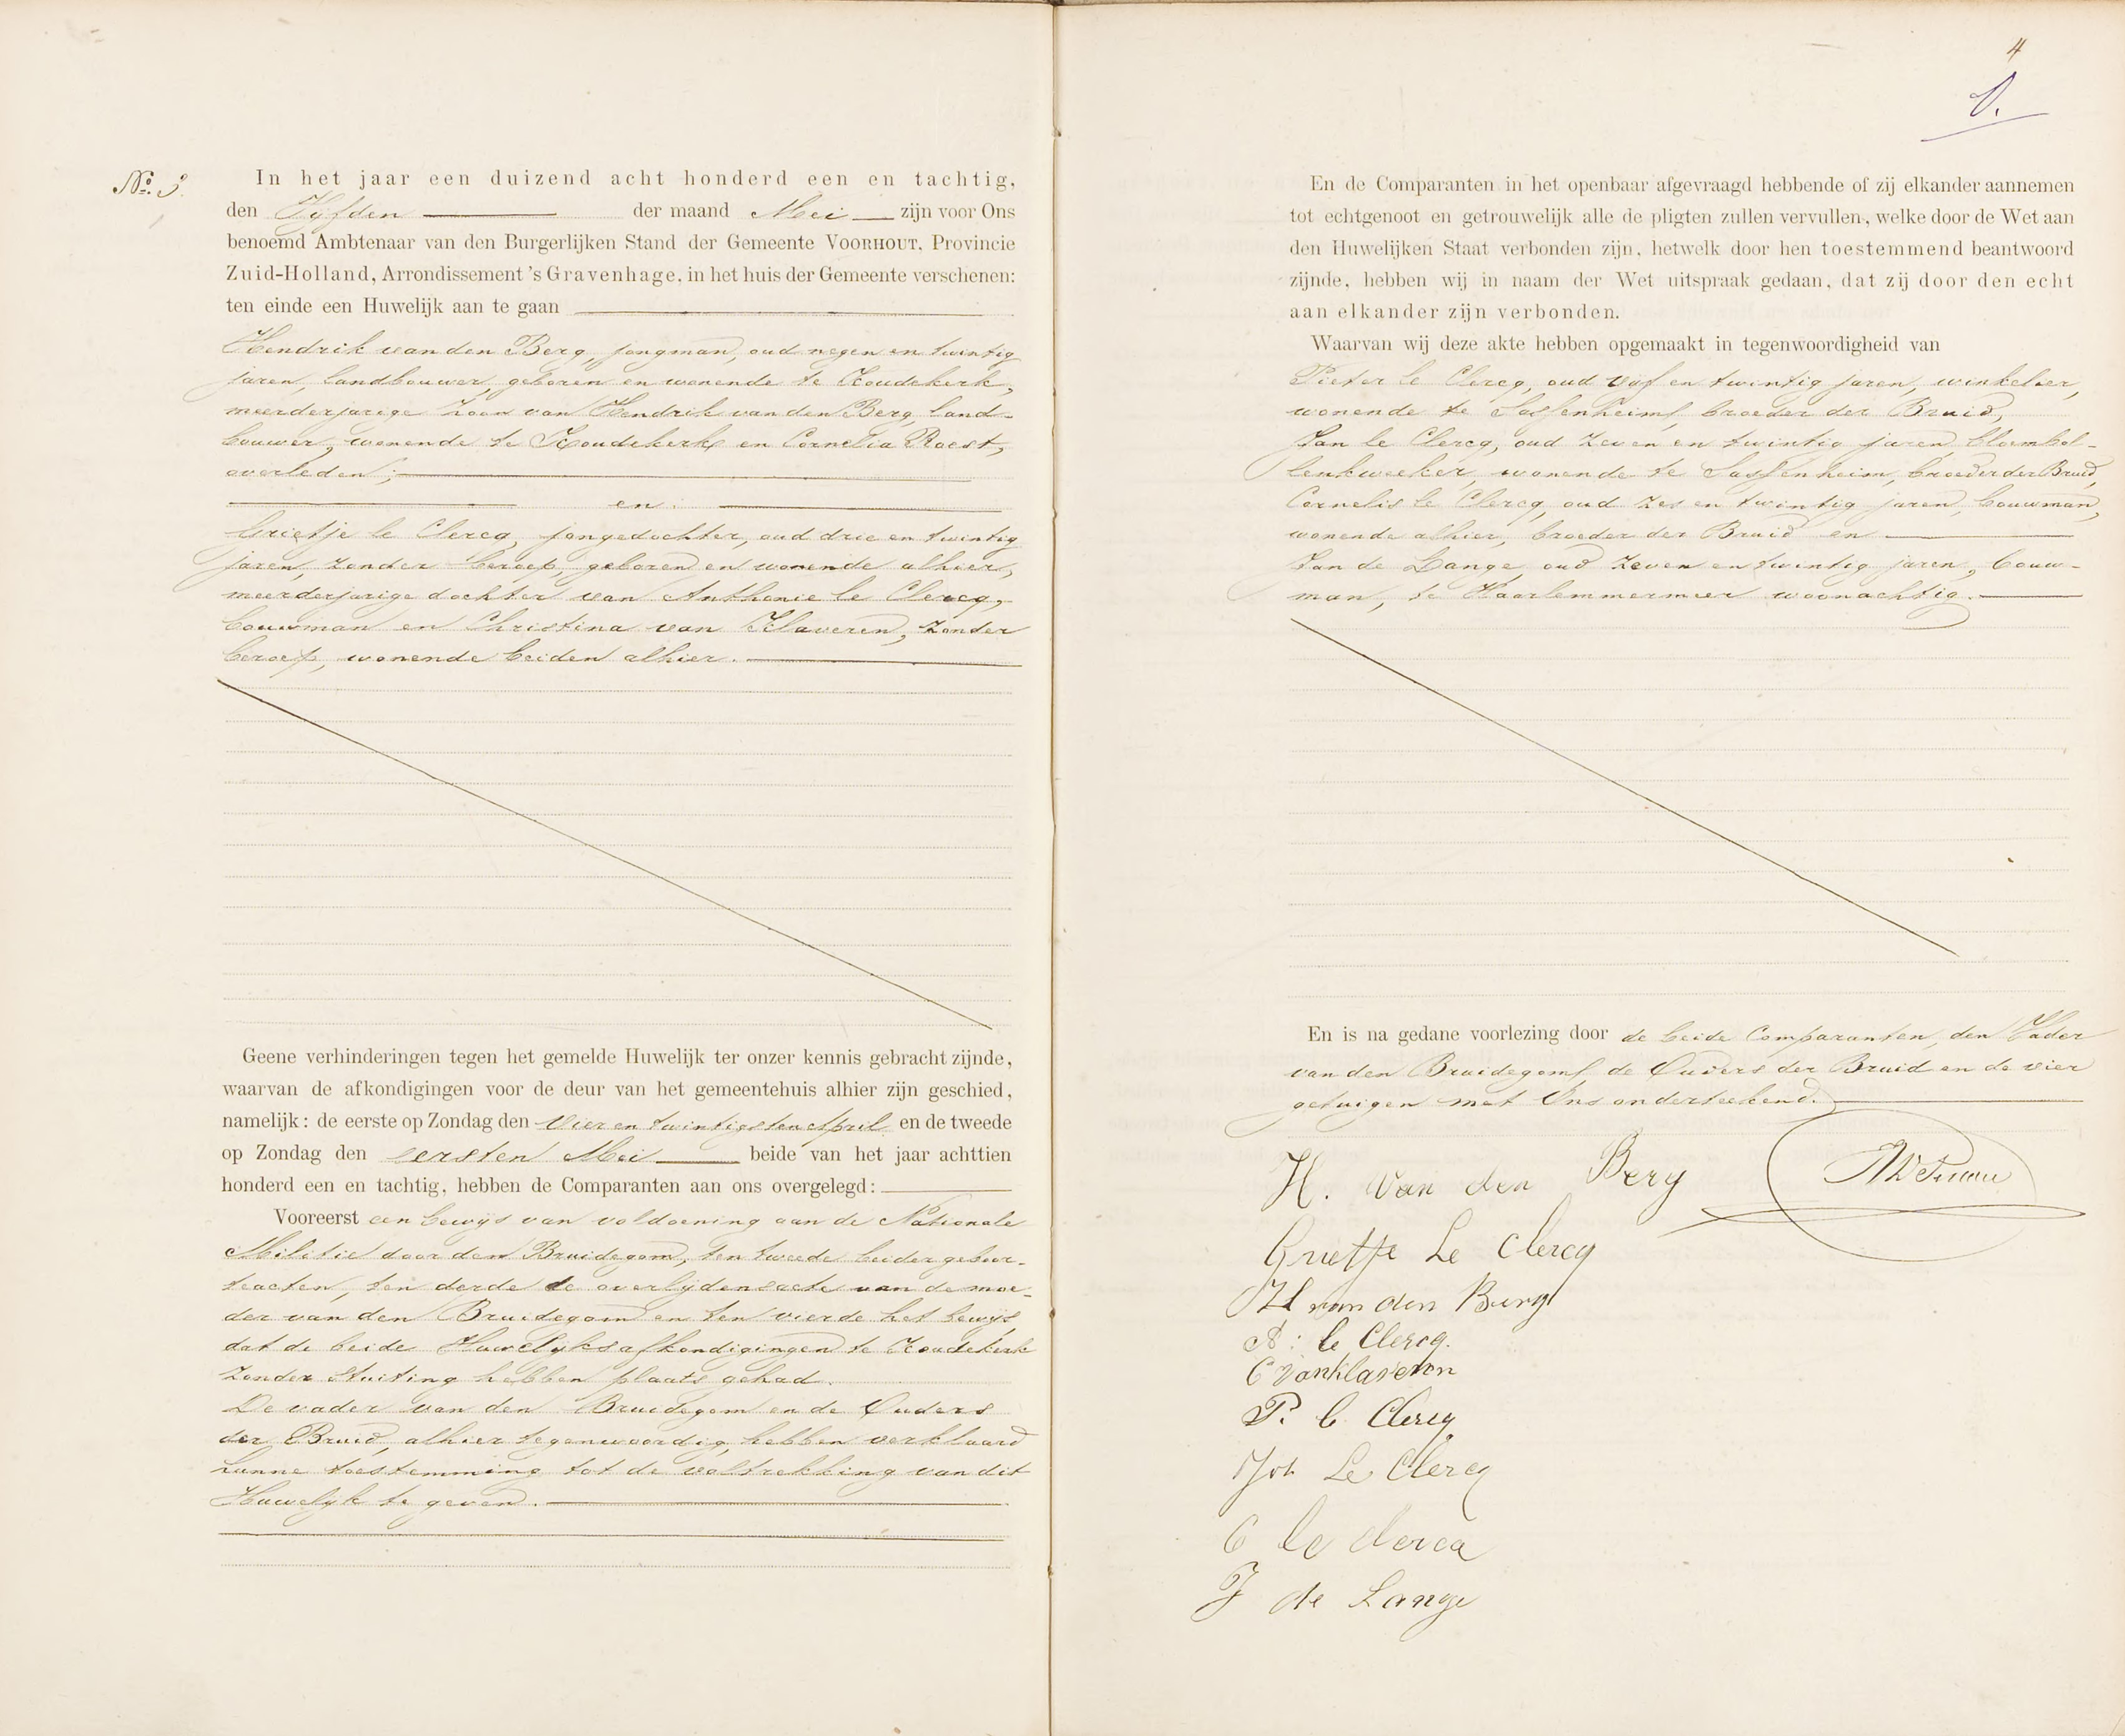 No. 5.
In het jaar een duizend acht honderd een en tachtig,
den Vyfden der maand Mei zijn voor Ons
benoemd Ambtenaar van den Burgerlijken Stand der Gemeente VOORHOUT, Provincie
Zuid-Holland, Arrondissement 's Gravenhage, in het huis der Gemeente verschenen:
ten einde een Huwelijk aan te gaan
Hendrik van den Berg, jongman, oud negen en twintig
jaren, landbouwer, geboren en wonende te Koudekerk,
meerderjarige zoon van Hendrik van den Berg, land-
bouwer, wonende te Koudekerk en Cornelia Roest,
overleden;
en:
Grietje le Clercq, jongedochter, oud drie en twintig
jaren, zonder beroep, geboren en wonende alhier,
meerderjarige dochter van Anthonie le Clercq,
bouwman en Christina van Klaveren, zonder
beroep, wonende beiden alhier.
Geene verhinderingen tegen het gemelde Huwelijk ter onzer kennis gebracht zijnde,
waarvan de afkondigingen voor de deur van het gemeentehuis alhier zijn geschied,
namelijk: de eerste op Zondag den Vier en twintigsten April en de tweede
op Zondag den eersten Mei beide van het jaar achttien
honderd een en tachtig, hebben de Comparanten aan ons overgelegd:
Vooreerst een bewijs van voldoening aan de Nationale
Militie door den Bruidegom, ten tweede beider geboor-
teacten, ten derde de overlijdensacte van de moe-
der van den Bruidegom en ten vierde het bewijs,
dat de beide Huwelyksafkondigingen te Koudekerk
zonder stuiting hebben plaats gehad.
De vader van den Bruidegom en de Ouders
der Bruid, alhier tegenwoordig, hebben verklaard
hunne toestemming tot de voltrekking van dit
Huwelyk te geven.
4
En de Comparanten in het openbaar afgevraagd hebbende of zij elkander aannemen
tot echtgenoot en getrouwelijk alle de pligten zullen vervullen, welke door de Wet aan
den Huwelijken Staat verbonden zijn, hetwelk door hen toestemmend beantwoord
zijnde, hebben wij in naam der Wet uitspraak gedaan, dat zij door den echt
aan elkander zijn verbonden.
Waarvan wij deze akte hebben opgemaakt in tegenwoordigheid van
Pieter le Clercq, oud vyf en twintig jaren, winkelier,
wonende te Sassenheim, broeder der Bruid,
Jan le Clercq, oud zeven en twintig jaren, bloembol-
lenkweeker, wonende te Sassenheim, broeder der Bruid,
Cornelis le Clercq, oud zes en twintig jaren, bouwman,
wonende alhier, broeder der Bruid en
Jan de Lange, oud zeven en twintig jaren, bouw-
man, te Haarlemmermeer woonachtig.
En is na gedane voorlezing door de beide Comparanten, den Vader
van den Bruidegom, de Ouders der Bruid en de vier
getuigen met Ons onderteekend.
H. van den Berg
Grietje Le Clercq
H van den Berg
A: le Clercq.
C van Klaveren
P. l Clercq
Joh Le Clercq
C le Clercq
J de Lange